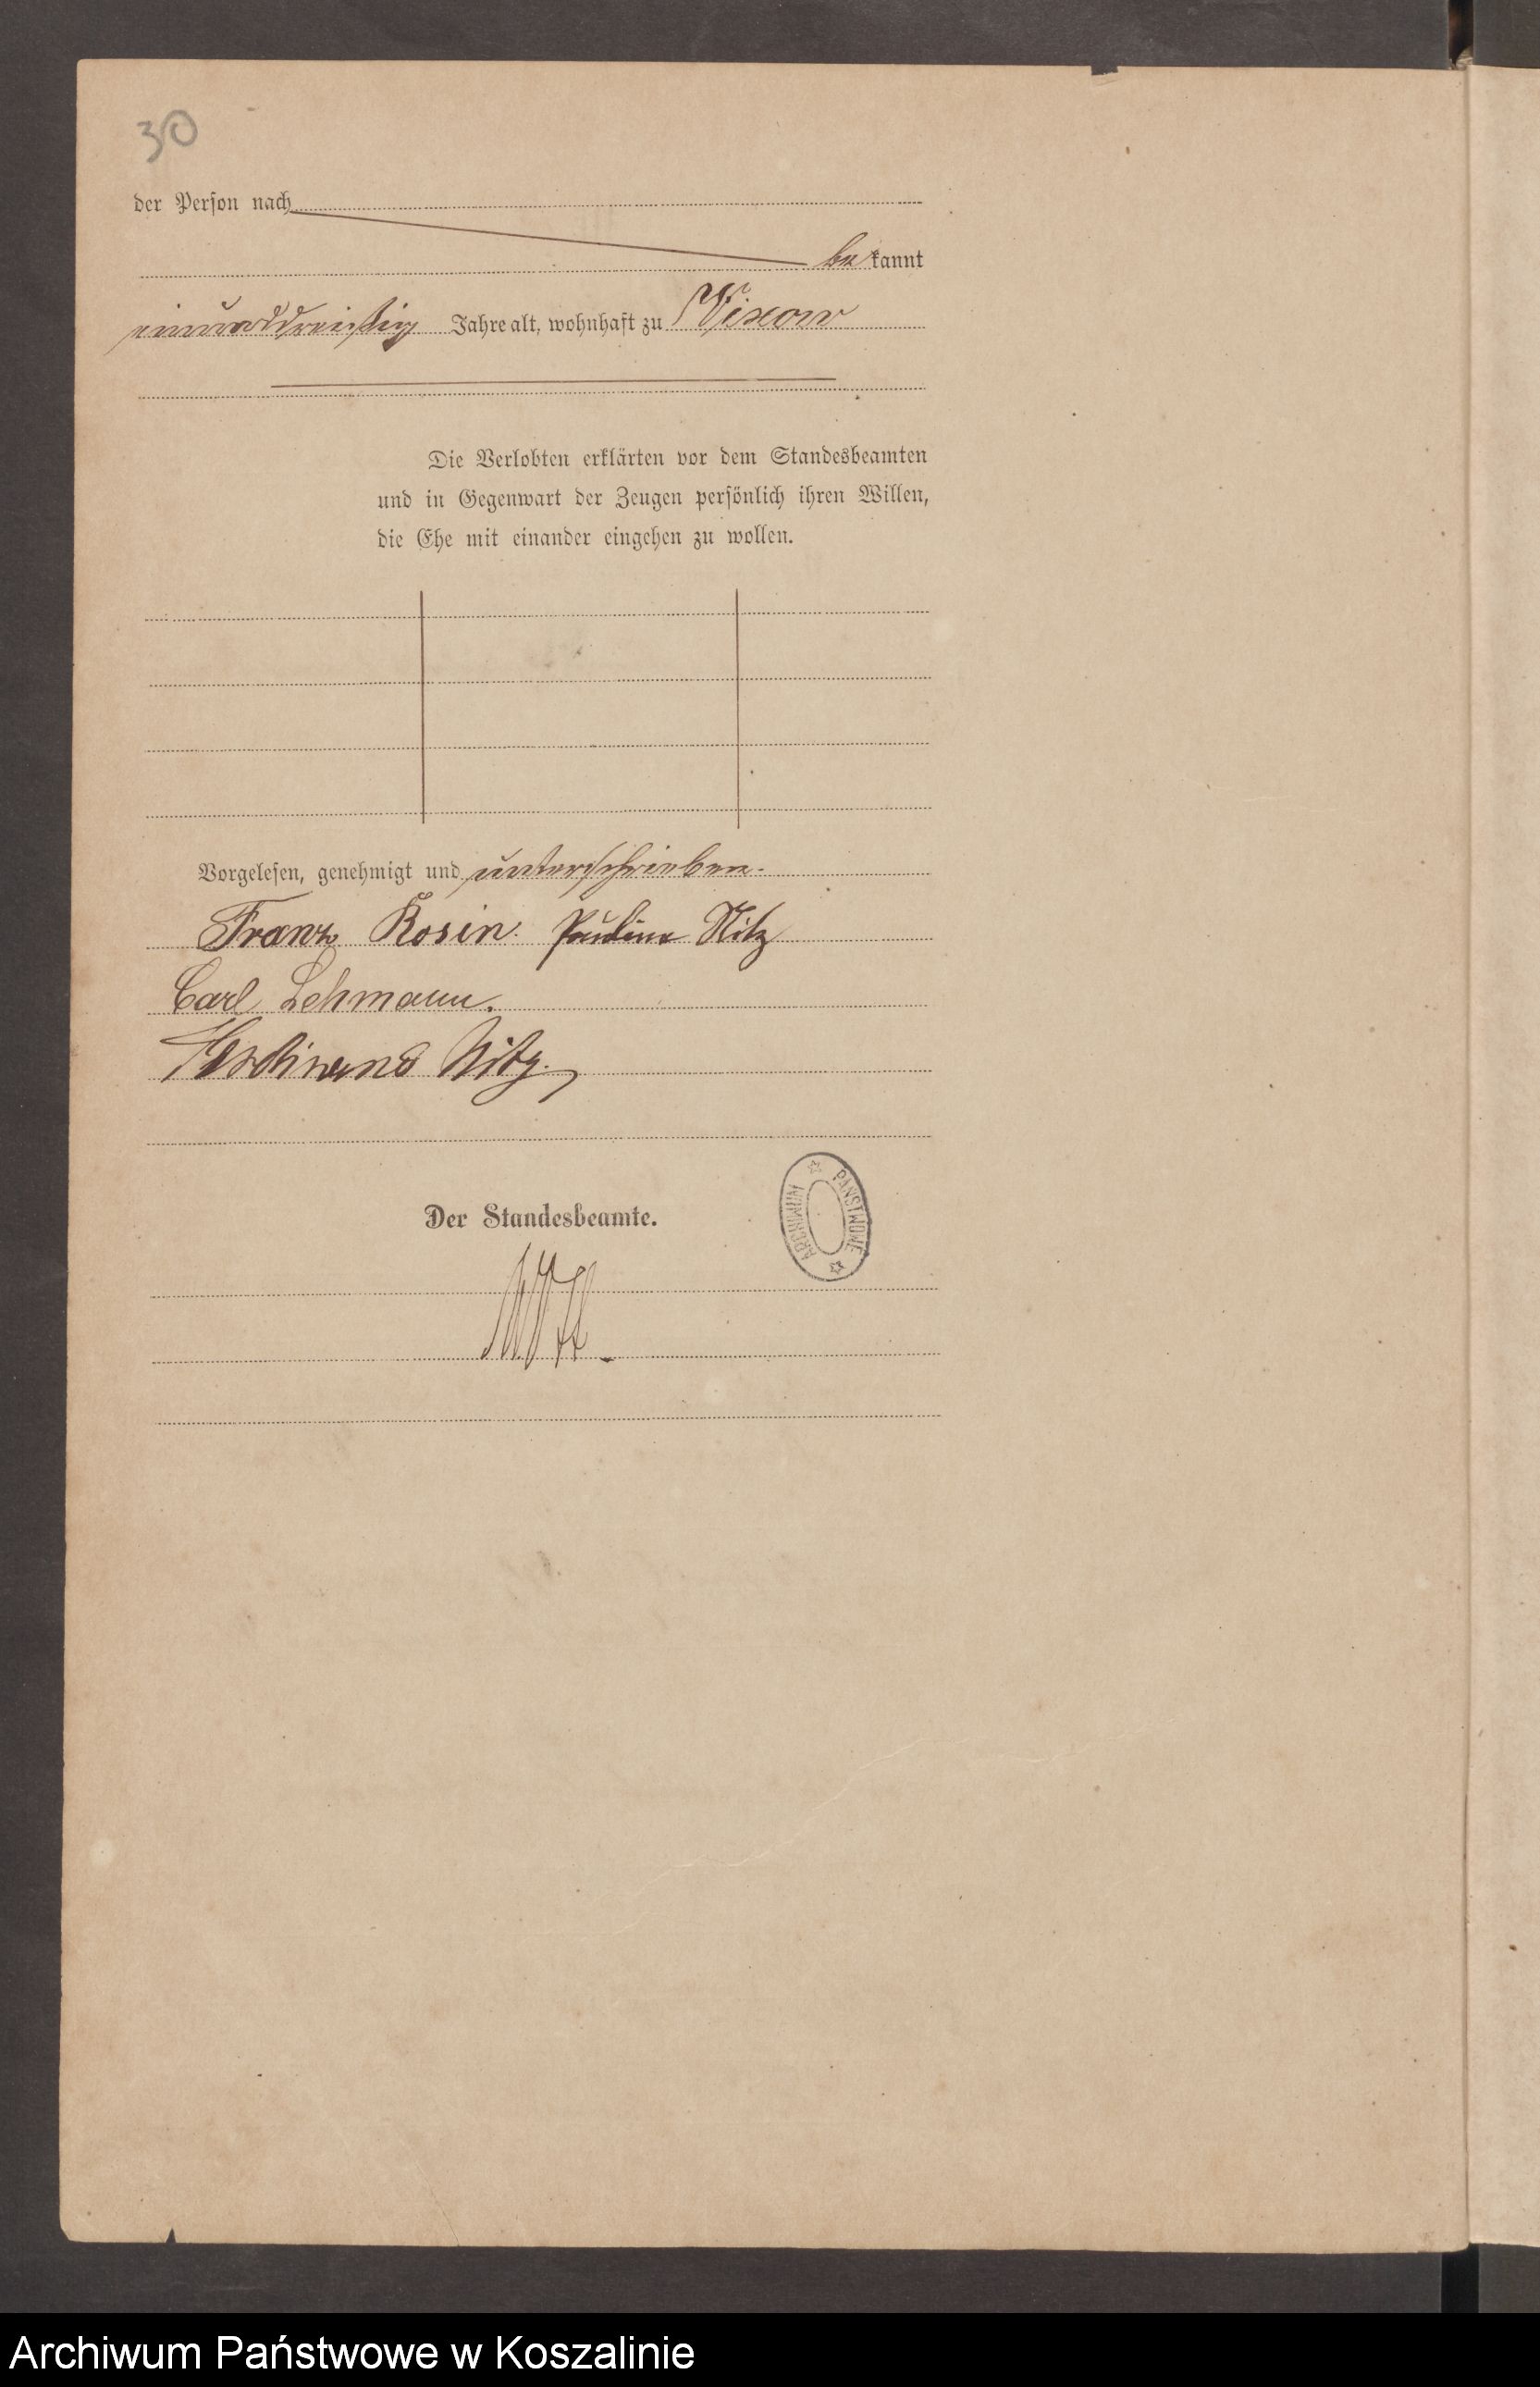 30
der Person nach
bekannt
einunddreißig Jahre alt, wohnhaft zu Vixow
Die Verlobten erklärten vor dem Standesbeamten
und in Gegenwart der Zeugen persönlich ihren Willen,
die Ehe mit einander eingehen zu wollen.
Vorgelesen, genehmigt und unterschrieben.
Franz Rosin. Pauline Nitz
Carl Lehmann.
Ferdinand Nitz.
ARCHIWUM PAŃSTWOWE
Der Standesbeamte.
Archiwum Państwowe w Koszalinie